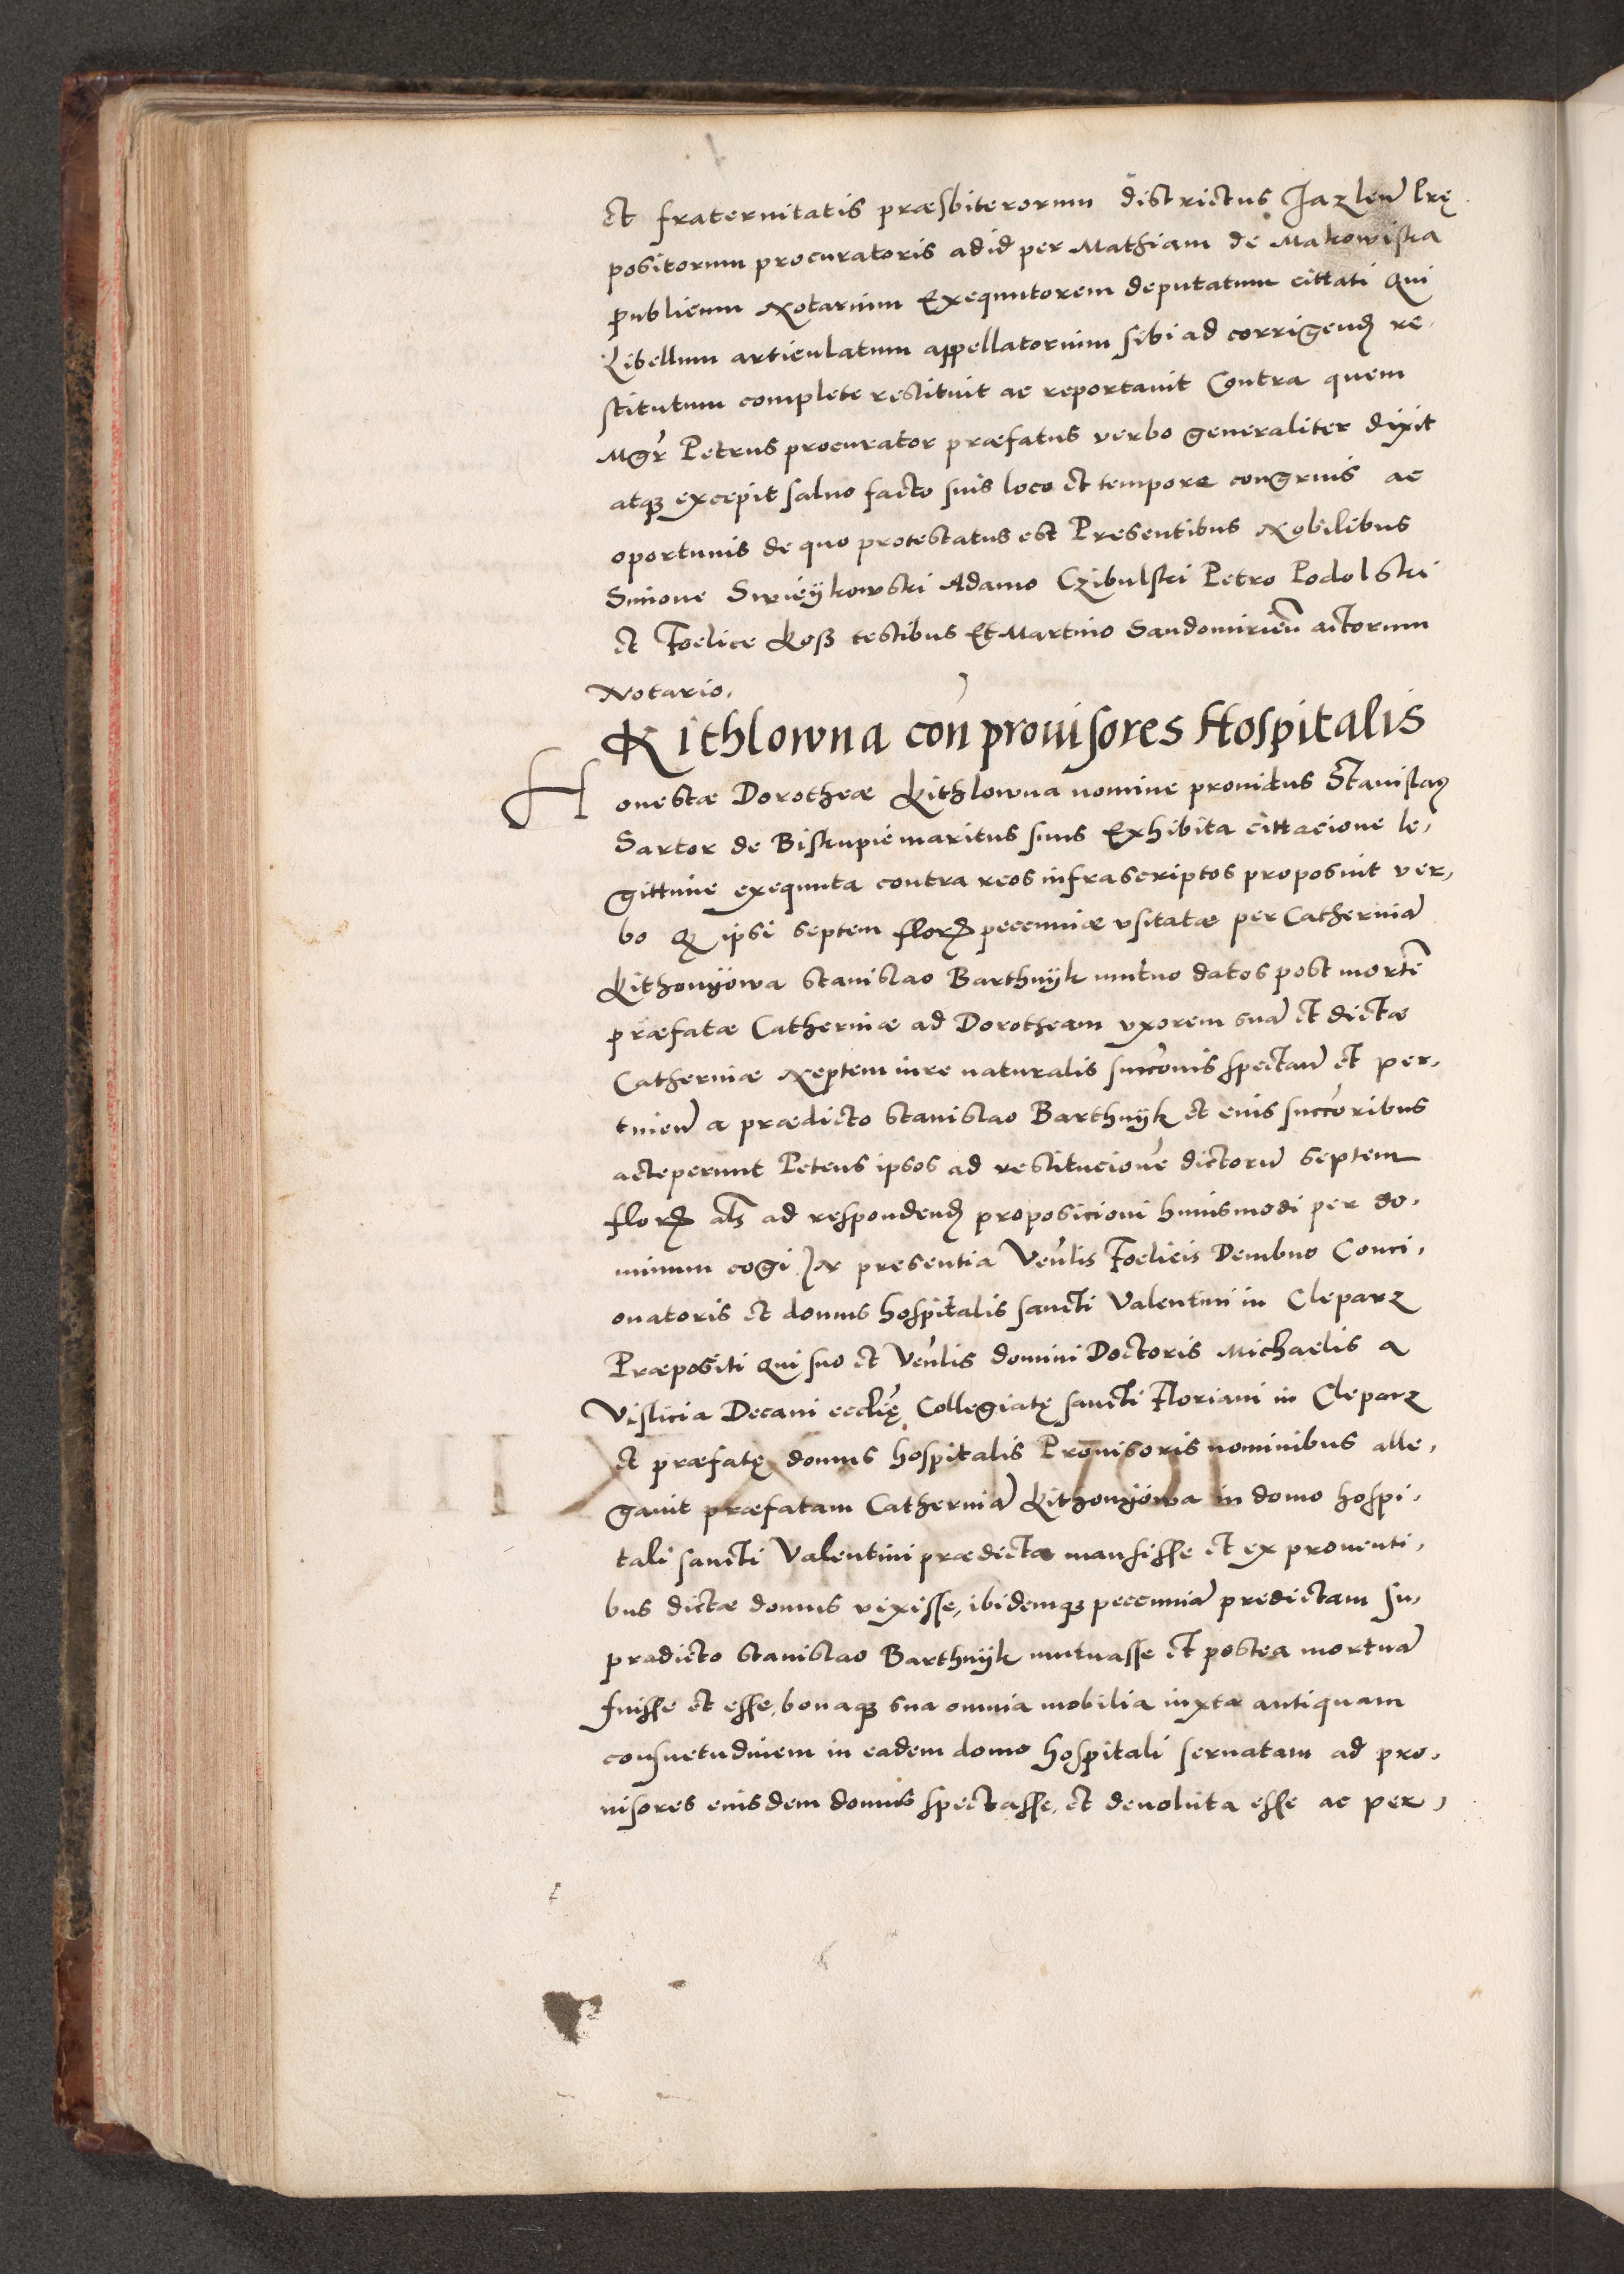 et fraternitatis præsbiterorum districtus Jazleuẽ Prę
positorum procuratoris ad id per Mathiam de Makowiska
publicum Notarium Exequutorem deputatum cittati Qui
Libellum articulatum appellatorium sibi ad corrigend re,
stitutum complete restituit ac reportauit Contra quem
Mgr̃ Petrus procurator præfatus verbo generaliter dixit
atq₃ excepit saluo facto suis loco et tempore congruis ac
oportunis de quo protestatus est Presentibus Nobilibus
Simone Swieÿkowski Adamo Czibulski Petro Podolski
et Foelice Koß testibus Et Martino Sandomirieñ actorum
Notario.
Kithlowna coñ prouisores Hospitalis
Honestæ Dorotheæ Kithlowna nomine prouidus Stanislaꝰ
Sartor de Biskupie maritus suus Exhibita cittacione le,
gittime exequuta contra reos infrascriptos proposuit ver,
bo Q ipsi septem flor pecuniæ vsitatæ per Catherinã
Kithonÿowa Stanislao Barthnÿk mutuo datos post mortẽ
præfatæ Catherinæ ad Dorotheam vxorem suã et dictæ
Catherinæ Neptem iure naturalis succõnis spectañ et per,
tineñ a prædicto Stanislao Barthnÿk et eius succõribus
acceperunt Petens ipsos ad restitucionẽ dictorũ septem
flor als ad respondend proposicioni huiusmodi per do,
minum cogi In presentia Veñlis Foelicis Dembno Conci,
onatoris et domus hospitalis sancti Valentini in Cleparz
Præpositi Qui suo et Veñlis domini Doctoris Michaelis a
Vislicia Decani eccl̃ię Collegiatę sancti Floriani in Cleparz
et præfatę domus hospitalis Prouisoris nominibus alle,
gauit præfatam Catherinã Kithonÿowa in domo hospi,
tali sancti Valentini prædicta mansisse et ex prouenti,
bus dictæ domus vixisse, ibidemq₃ peccuniã predictam su,
pradicto Stanislao Barthnÿk mutuasse et postea mortuã
fuisse et esse, bonaq₃ sua omnia mobilia iuxta antiquam
consuetudinem in eadem domo hospitali seruatam ad pro,
uisores eiusdem domus spectasse, et deuoluta esse ac per,